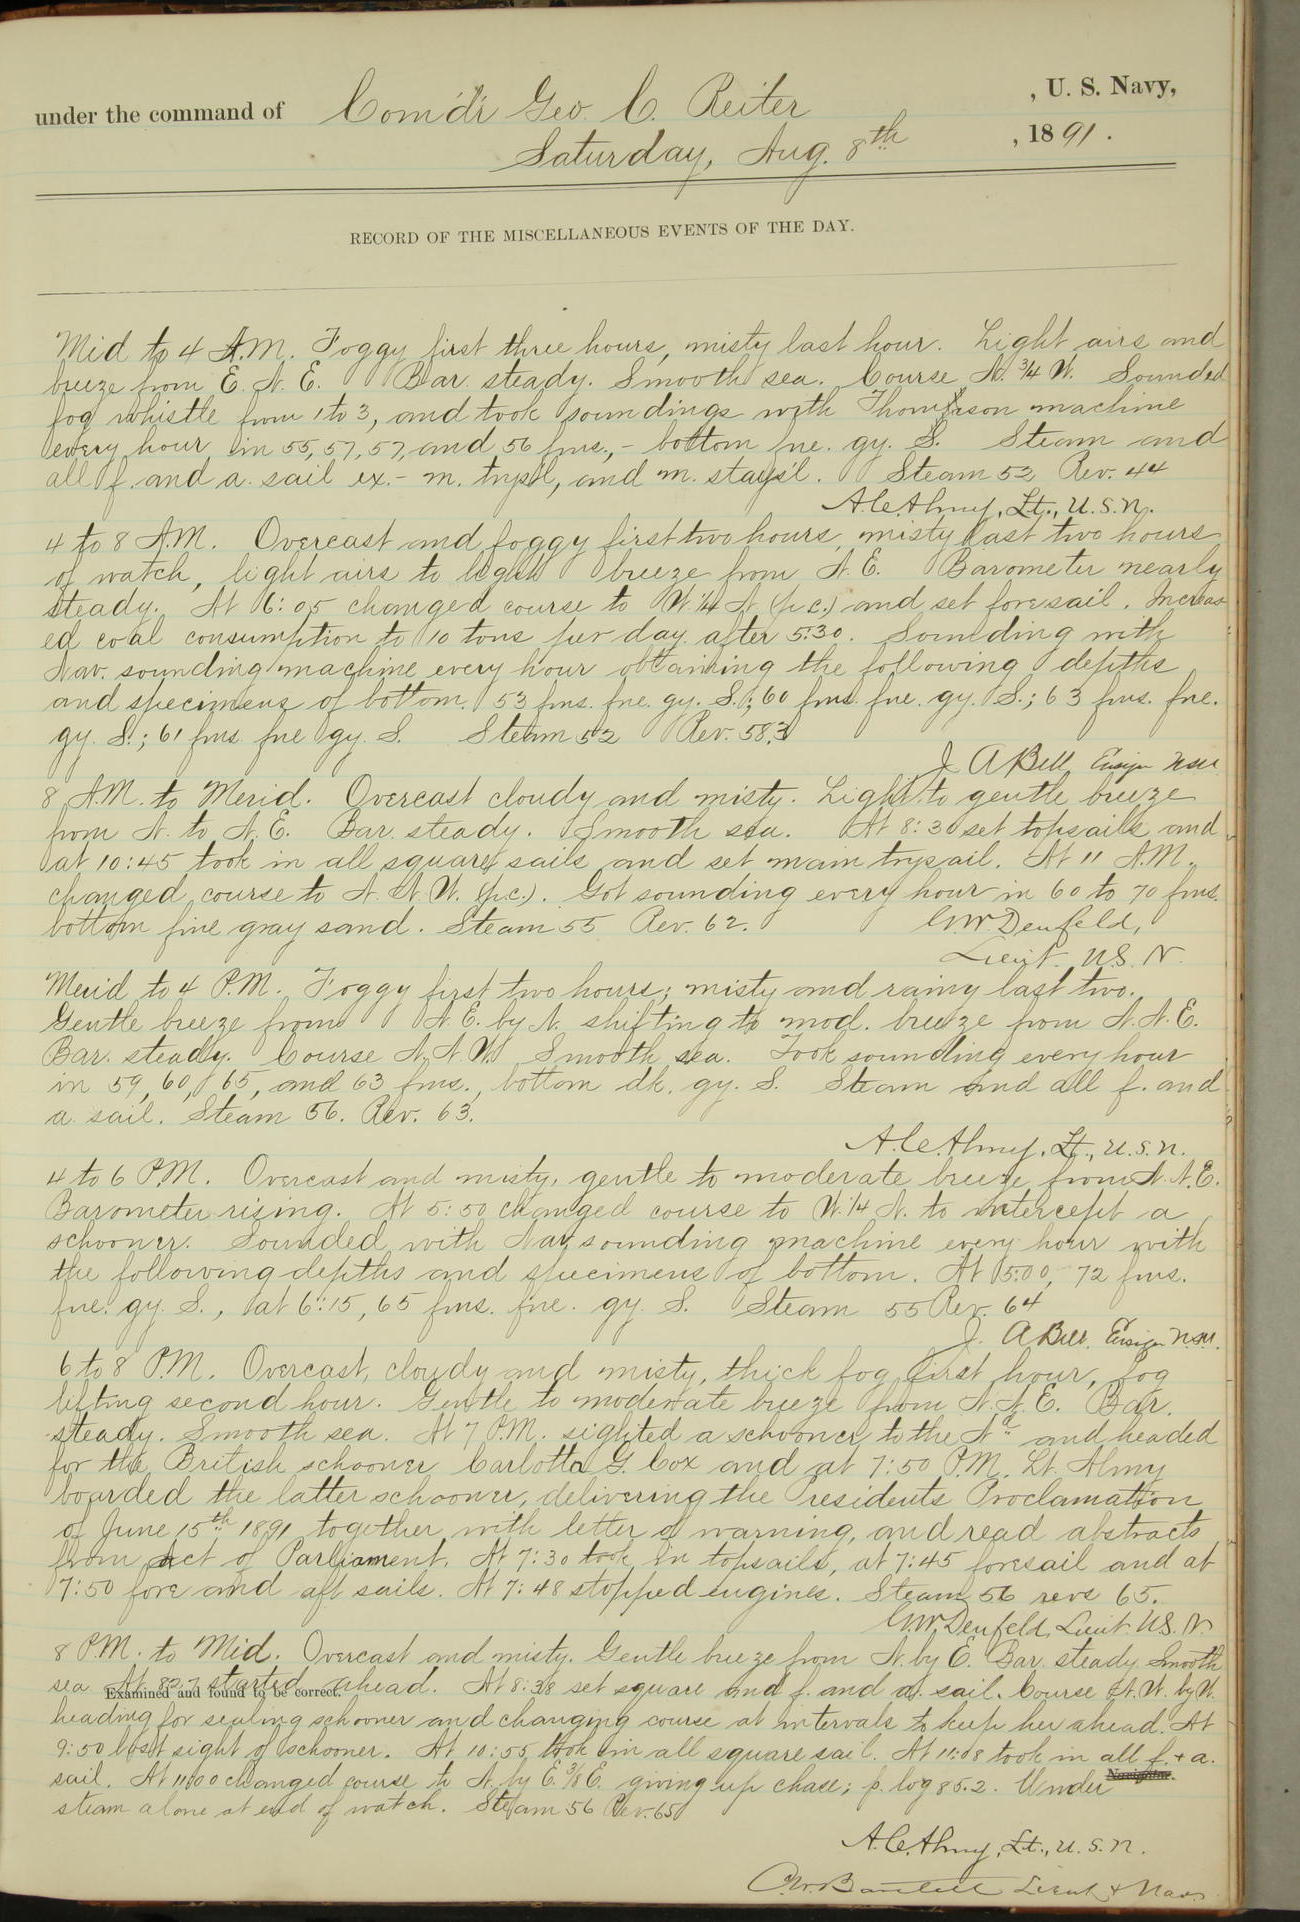 under the command of Com'd'r Geo. C. Reiter , U. S. Navy,
Saturday, Aug. 8th , 1891.
RECORD OF THE MISCELLANEOUS EVENTS OF THE DAY.
Mid to 4 A.M. Foggy first three hours, misty last hour. Light airs and
breeze from E. N. E. Bar. steady. Smooth sea. Course N. 3/4 W. Sounded
fog whistle from 1 to 3, and took soundings with Thompson machine
every hour in 55, 57, 57, and 56 fms., - bottom fne. gy. S. Steam and
all f. and a. sail ex.- m. trys'l, and m. stays'l. Steam 52 Rev. 44
A.C. Almy, Lt., U.S.N.
4 to 8 A.M. Overcast and foggy first two hours, misty last two hours
of watch, light airs to light breeze from N.E. Barometer nearly
steady. At 6:05 changed course to N 1/4 N (p.c.) and set foresail. Increas-
ed coal consumption to 10 tons per day after 5:30. Sounding with
Nav. sounding machine every hour obtaining the following depths
and specimens of bottom. 53 fms. fne. gy. S.; 60 fms. fne. gy. S.; 63 fms. fne.
gy. S.; 61 fms. fne gy. S. Steam 52 Rev. 58.3
J. A Bell Ensign USN
8 A.M. to Merid. Overcast cloudy and misty. Light to gentle breeze
from N. to N.E. Bar. steady. Smooth sea. At 8:30 set topsails and
at 10:45 took in all square sails and set main trysail. At 11 A.M.
changed course to N. N. W. (p.c.). Got sounding every hour in 60 to 70 fms.
bottom fine gray sand. Steam 55 Rev. 62. G.W. Denfeld,
Lieut. U.S. N.
Merid to 4 P.M. Foggy first two hours; misty and rainy last two.
Gentle breeze from N.E. by N. shifting to mod. breeze from N.N.E.
Bar. steady. Course N.N.W. Smooth sea. Took sounding every hour
in 59, 60, 65, and 63 fms., bottom dk. gy. S. Steam and all f. and
a. sail. Steam 56. Rev. 63.
A.C. Almy, Lt., U.S.N.
4 to 6 P.M. Overcast and misty, gentle to moderate breeze from N.N.E.
Barometer rising. At 5:50 changed course to W. 1/4 N. to intercept a
schooner. Sounded with Nav. sounding machine every hour with
the following depths and specimens of bottom. At 5:00, 72 fms.
fne. gy. S., at 6:15, 65 fms. fne. gy. S. Steam 55 Rev. 64
J. A Bell. Ensign U.S.N.
6 to 8 P.M. Overcast, cloudy and misty, thick fog first hour, fog
lifting second hour. Gentle to moderate breeze from N.N.E. Bar.
steady. Smooth sea. At 7 P.M. sighted a schooner to the Nd and headed
for the British schooner Carlotta G. Cox and at 7:50 P.M. Lt. Almy
boarded the latter schooner, delivering the Presidents Proclamation
of June 15th 1891 together with letter of warning, and read abstracts
from Act of Parliament. At 7:30 took in topsails, at 7:45 foresail and at
7:50 fore and aft sails. At 7:48 stopped engines. Steam 56 revs 65.
G.W. Denfeld, Lieut U.S. N
8 P.M. to Mid. Overcast and misty. Gentle breeze from N. by E. Bar. steady. Smooth
sea At 8:27 started ahead. At 8:38 set square and f. and a. sail. Course N.W. by W.
Examined and found to be correct.
heading for sealing schooner and changing course at intervals to keep her ahead. At
9:50 lost sight of schooner. At 10:55 took in all square sail. At 11:08 took in all f. + a.
sail. At 11:00 changed course to N. by E. 3/8 E. giving up chase; p. log 85.2. Under
Navigator.
steam alone at end of watch. Steam 56 Rev. 65
A.C. Almy, Lt., U.S.N.
C.W. Bartlett Lieut & Nav.